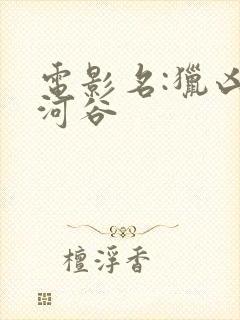 電影名:獵凶
河谷
檀浮香